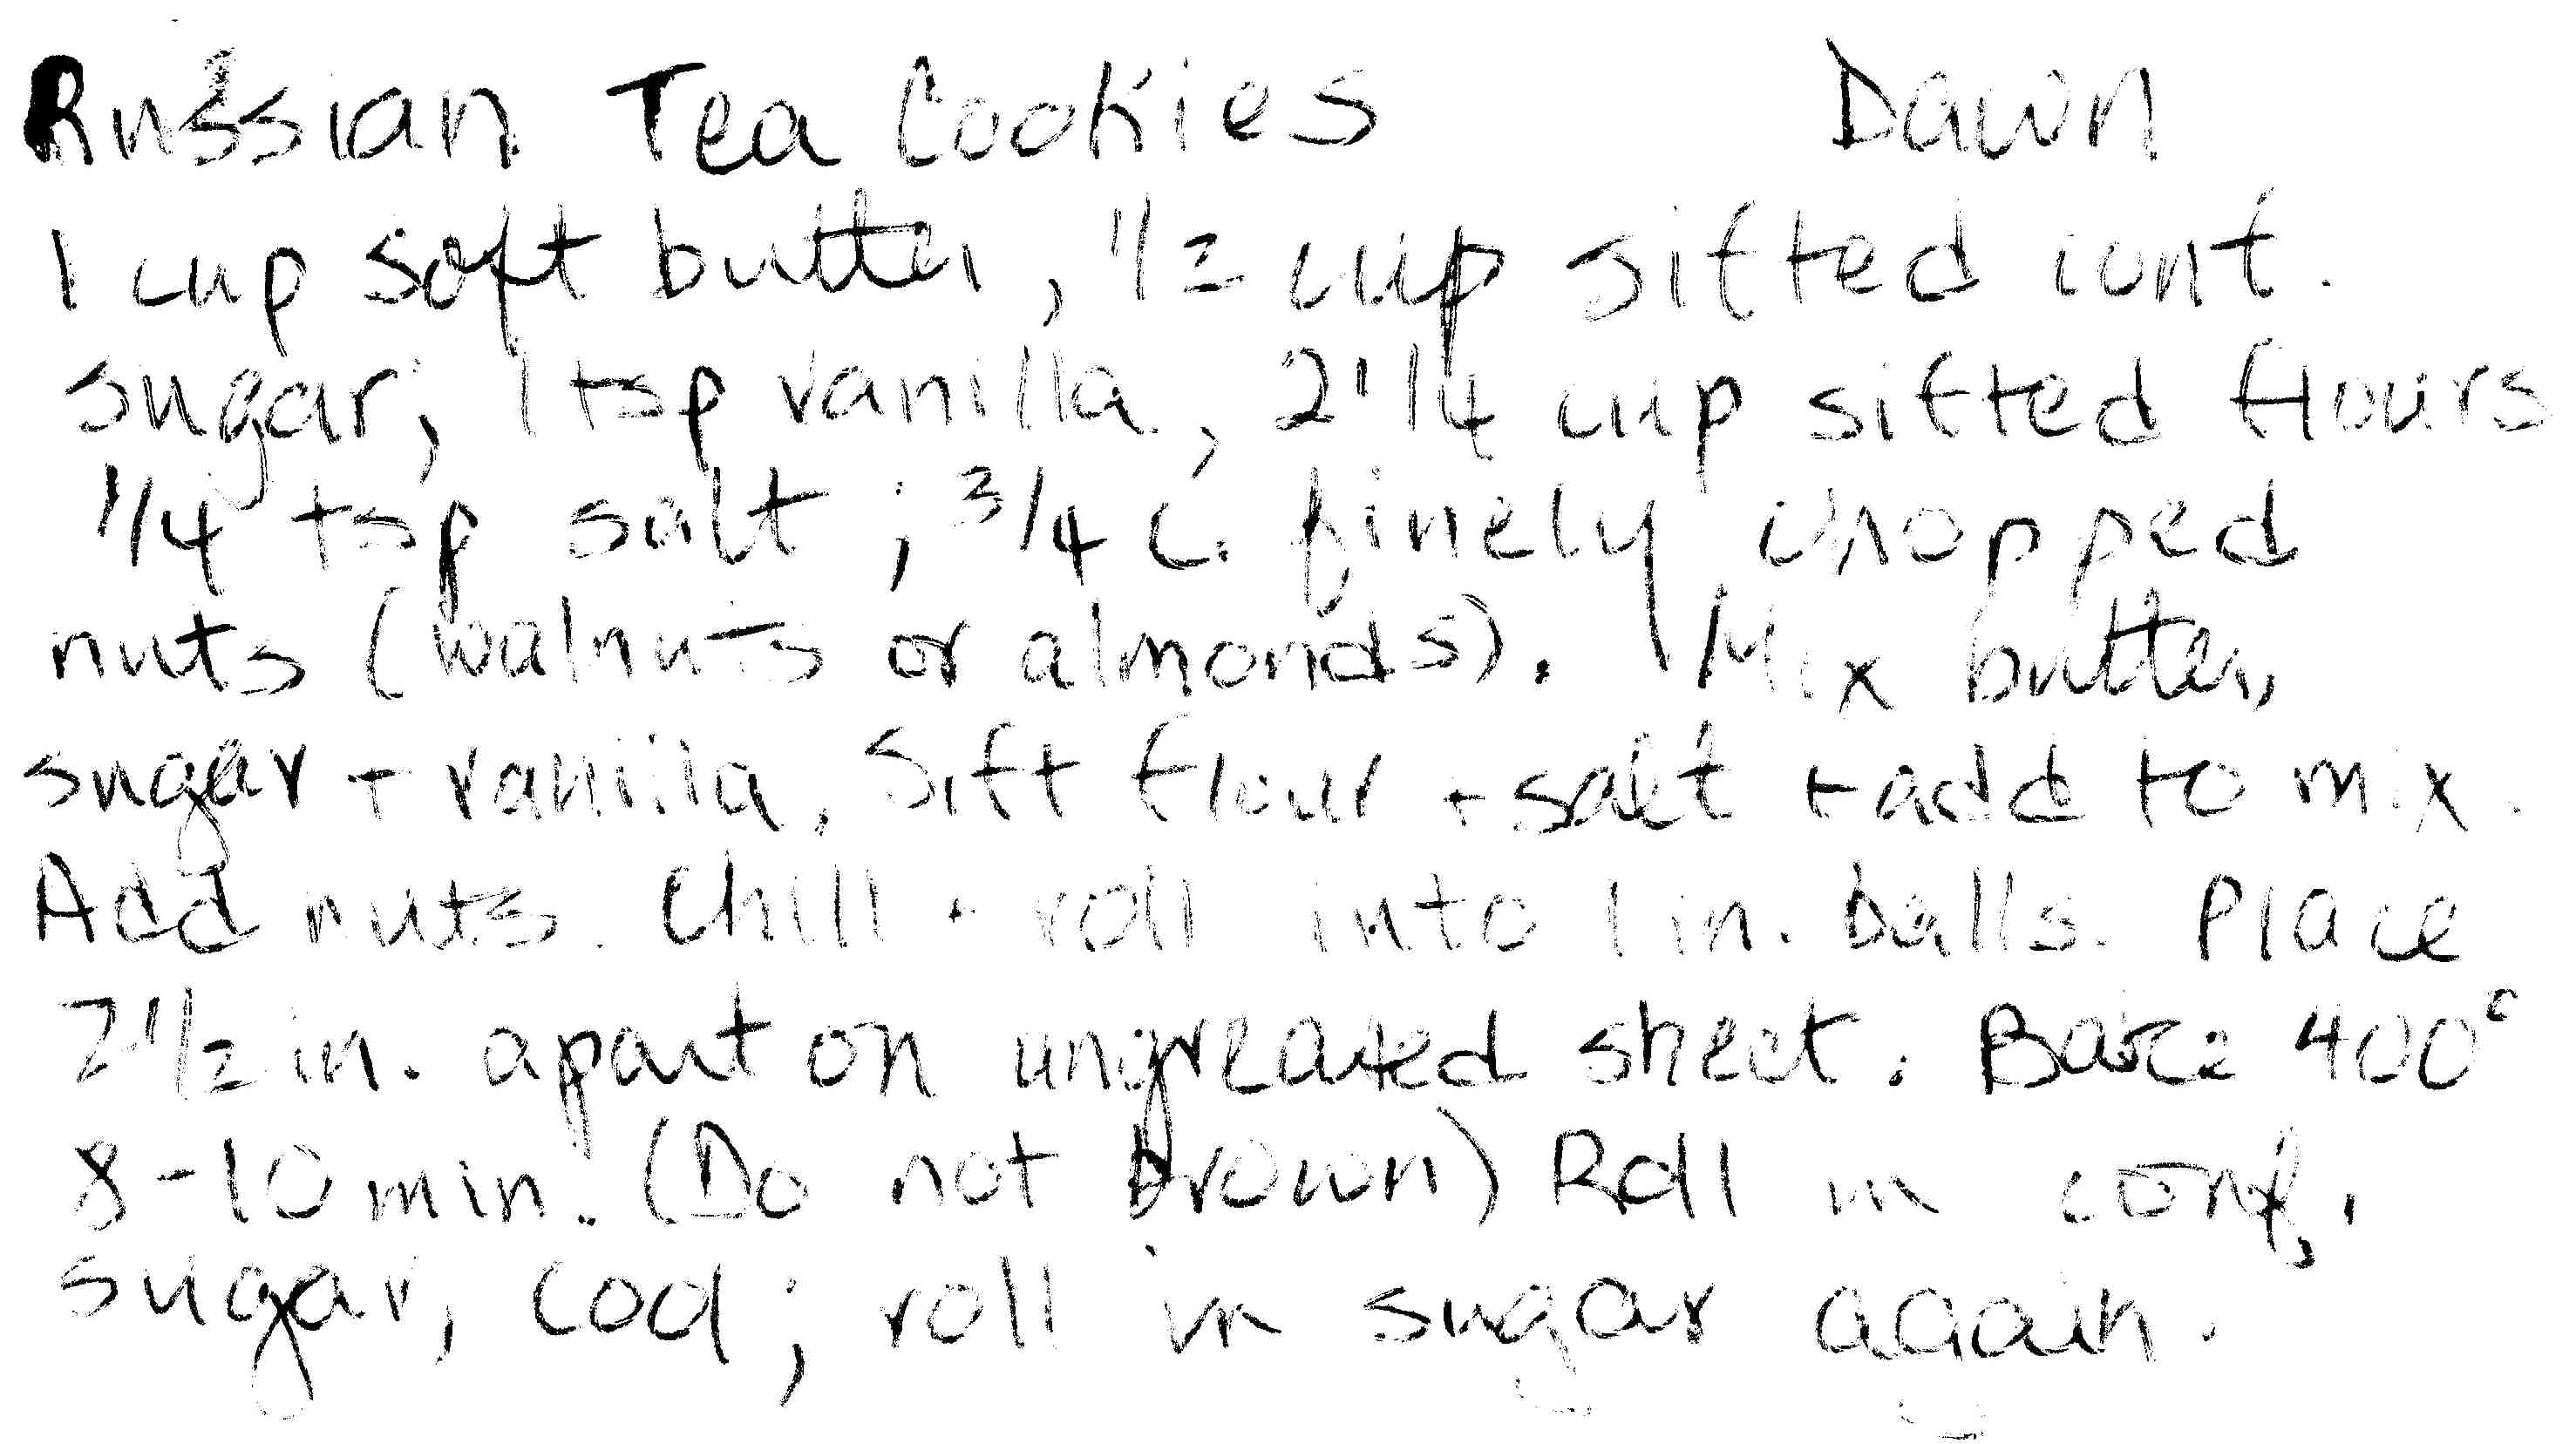 Russian Tea Cookies Dawn
1 cup soft butter, 1/2 cup sifted conf.
sugar, 1 tsp vanilla, 2 1/4 cup sifted flours
1/4 tsp salt; 3/4 c. finely chopped
nuts (walnuts or almonds). Mix butter,
sugar + vanilla, Sift flour + salt + add to mix.
Add nuts. Chill + roll into 1 in. balls. Place
2 1/2 in. apart on ungreased sheet. Bake 400°
8-10 min. (Do not brown) Roll in conf.
sugar, cool; roll in sugar again.